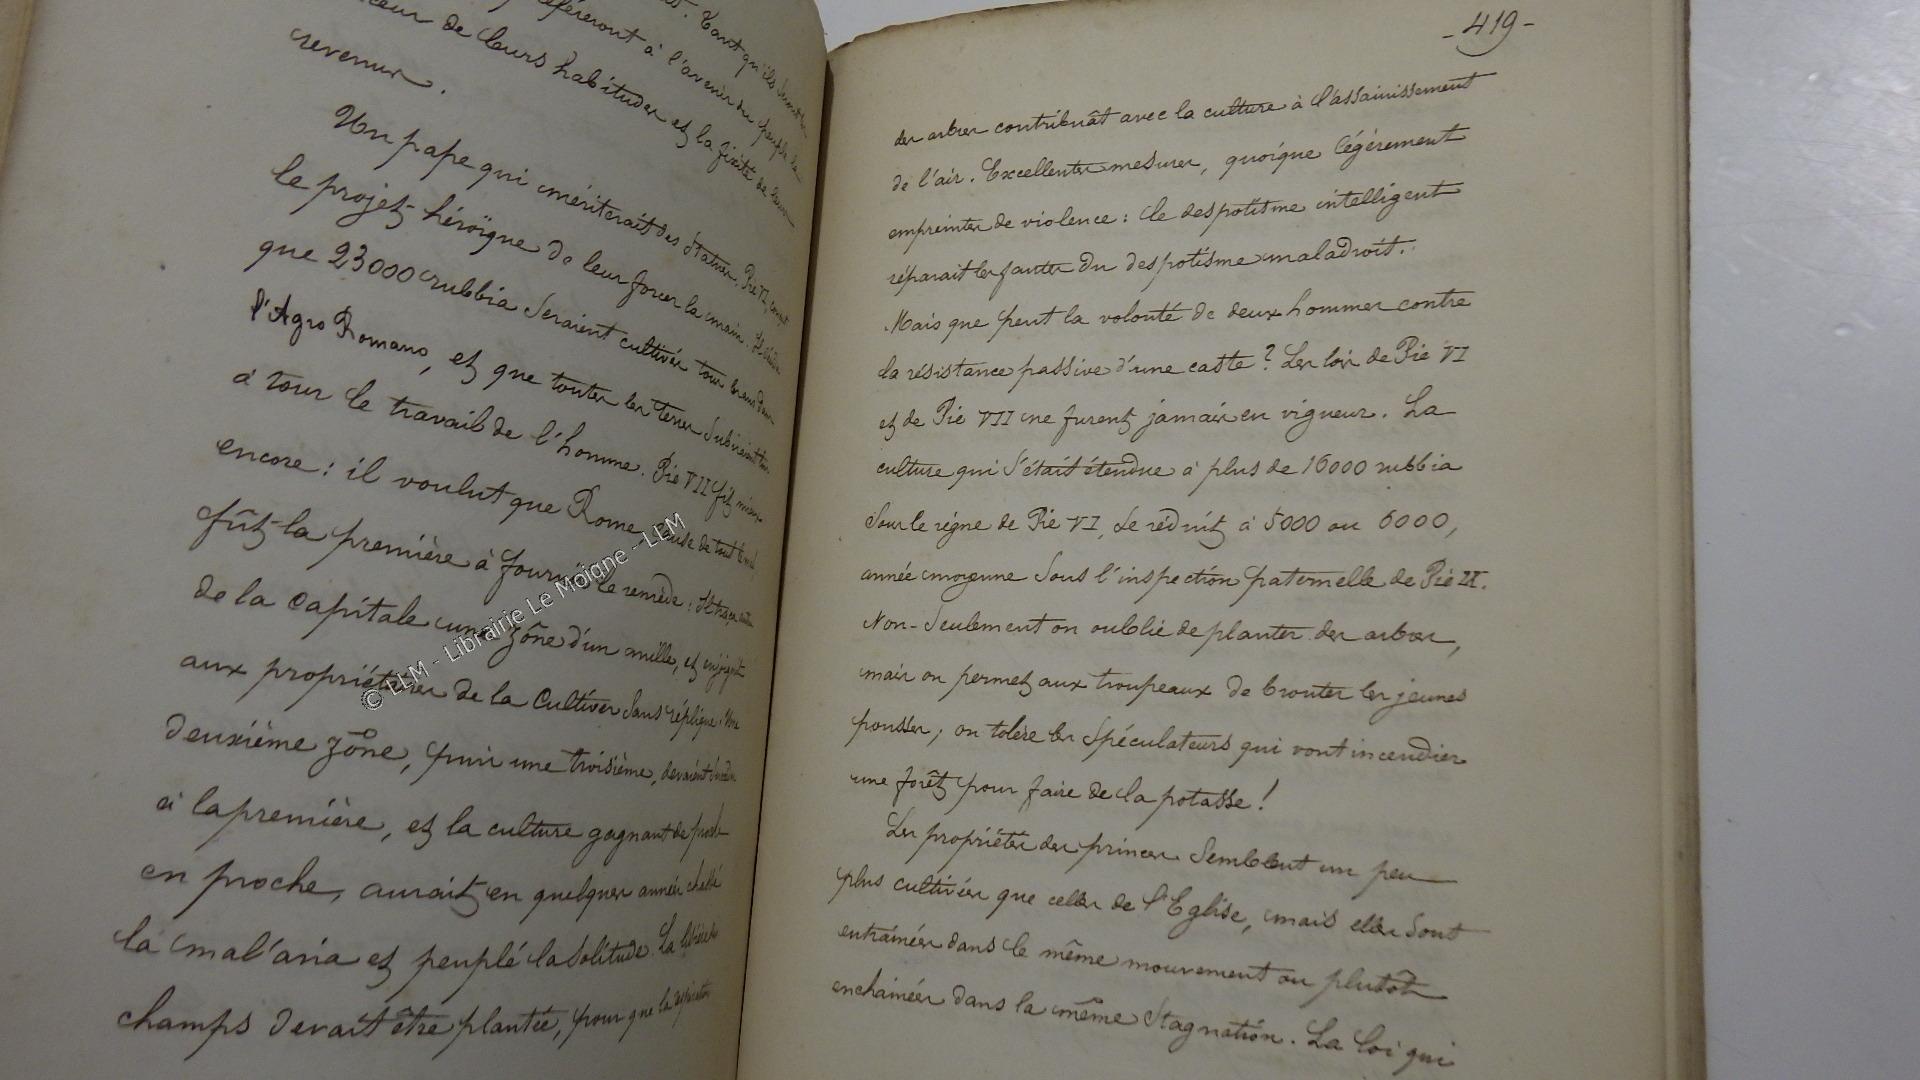 Tant qu'ils
préfèreront à l'avenir du peuple la
de leurs habitudes et la fixité de leurs
revenus.
Un pape qui mériterait des statues, Pie VI, conçut
le projet héroïque de leur forcer la main. Il
que 23000 rubbia seraient cultivés tous les ans dans
l'Agro Romano, et que toutes les terres subiraient tour
à tour le travail de l'homme. Pie VII fit mieux
encore : il voulut que Rome, cause de tout le mal,
fût la première à fournir le remède : Il traça autour
de la capitale une zône d'un mille, et enjoignit
aux propriétaires de la cultiver sans réplique. Une
deuxième zône, puis une troisième, devaient succéder
à la première, et la culture gagnant de proche
en proche, aurait en quelques années chassé
la mal'aria et peuplé la solitude. La lisière des
champs devait être plantée, pour que la respiration
© LLM - Librairie Le Moigne - LLM
- 419 -
des arbres contribuât avec la culture à l'assainissement
de l'air. Excellentes mesures, quoique légèrement
empreintes de violence : le despotisme intelligent
réparait les fautes du despotisme maladroit.
Mais que peut la volonté de deux hommes contre
la résistance passive d'une caste ? Les lois de Pie VI
et de Pie VII ne furent jamais en vigueur. La
culture qui s'était étendue à plus de 16000 rubbia
sous le règne de Pie VI, se réduit à 5000 ou 6000,
année moyenne sous l'inspection paternelle de Pie IX.
Non-seulement on oublie de planter des arbres,
mais on permet aux troupeaux de brouter les jeunes
pousses; on tolère les spéculateurs qui vont incendier
une forêt pour faire de la potasse !
Les propriétés des princes semblent un peu
plus cultivées que celles de l'Eglise, mais elles sont
entraînées dans le même mouvement ou plutôt
enchaînées dans la même stagnation. La loi qui